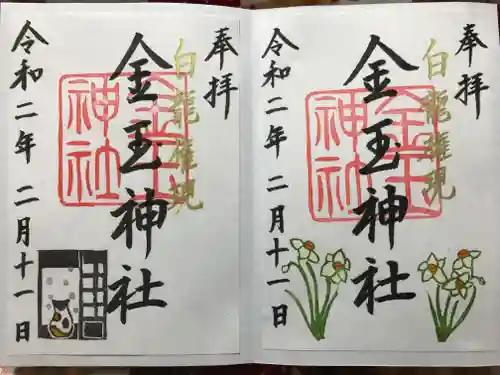 奉拝
白龍権現
金玉神社
金玉神社
令和二年 二月十一日
奉拝
白龍権現
金玉神社
金玉神社
令和二年 二月十一日